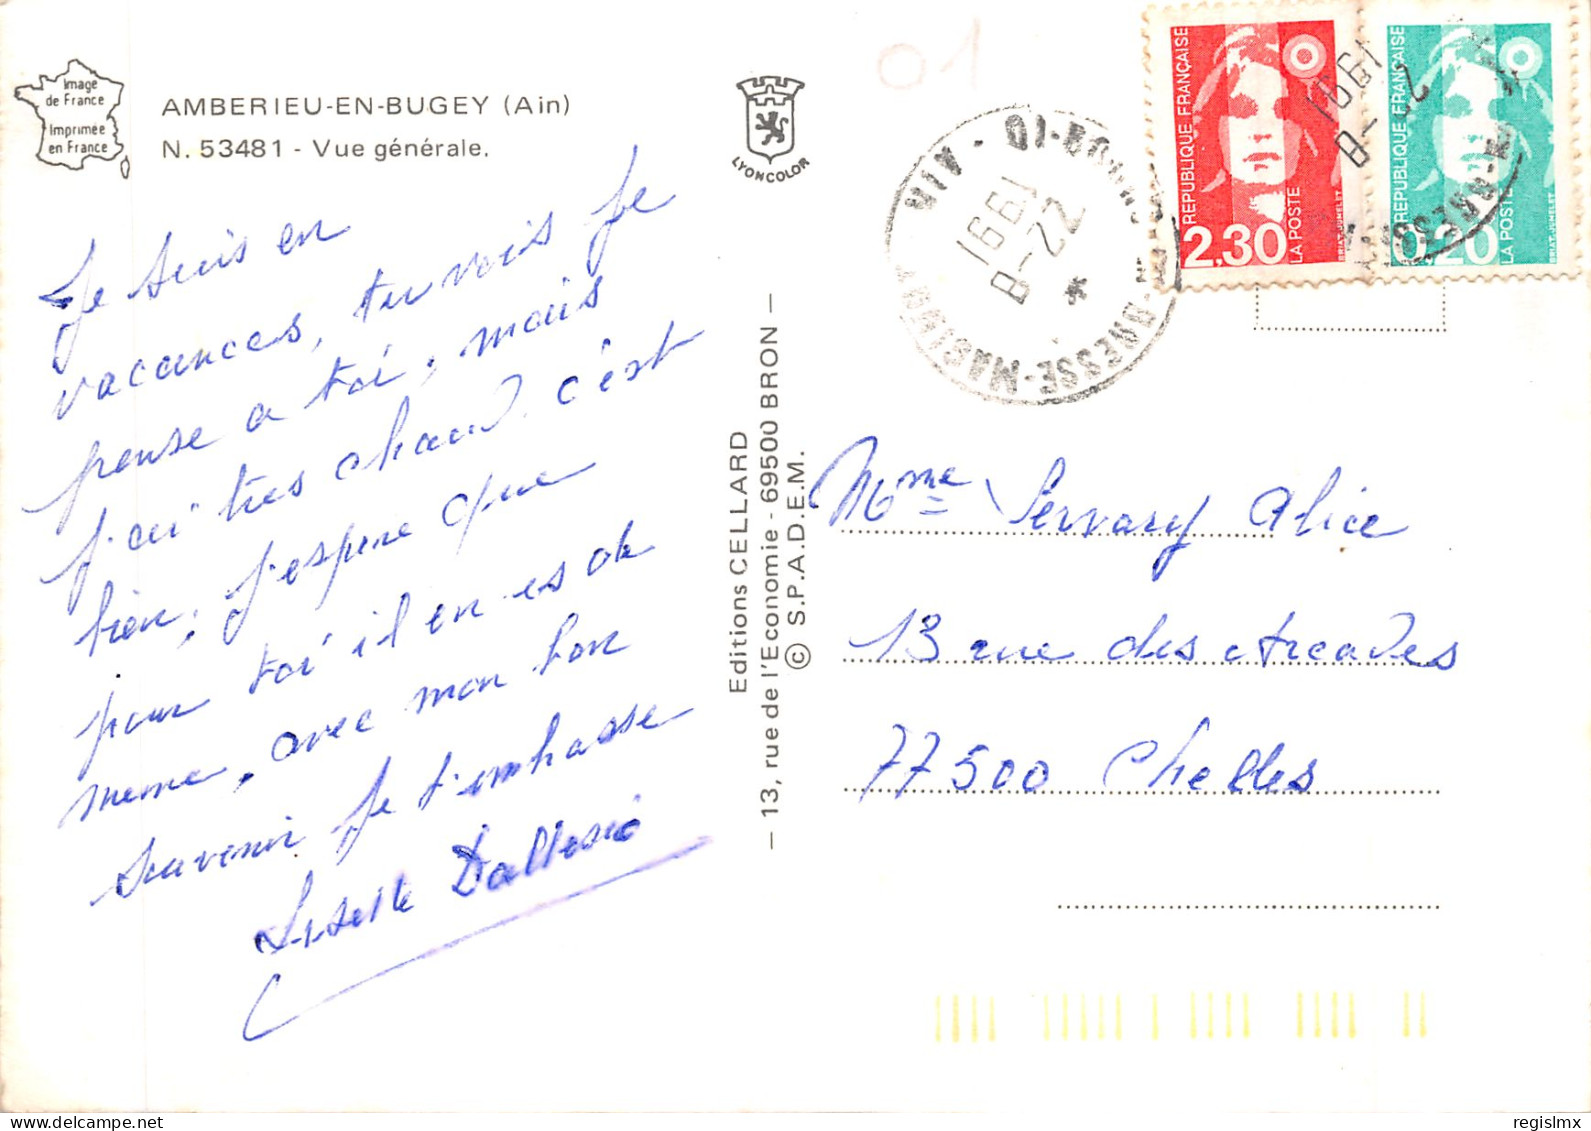 Image
de France
Imprimée
en France
AMBERIEU-EN-BUGEY (Ain)
N. 53481 - Vue générale.
LYONCOLOR
01
Je suis en
vacances, tu vois je
pense a toi, mais
j'ai très chaud. c'est
bien, j'espere que
pour toi il en es de
meme, avec mon bon
souvenir je t'embrasse
Lisette
Editions CELLARD
— 13, rue de l'Economie - 69500 BRON —
© S.P.A.D.E.M.
01-BOURG
AIN
1991
22-8
*
REPUBLIQUE FRANÇAISE
2,30
LA POSTE
BRIAT-JUMELET
REPUBLIQUE FRANÇAISE
0,20
LA POSTE
BRIAT-JUMELET
1991
Mme Servary Alice
13 rue des Arcades
77500 Chelles
regislmx